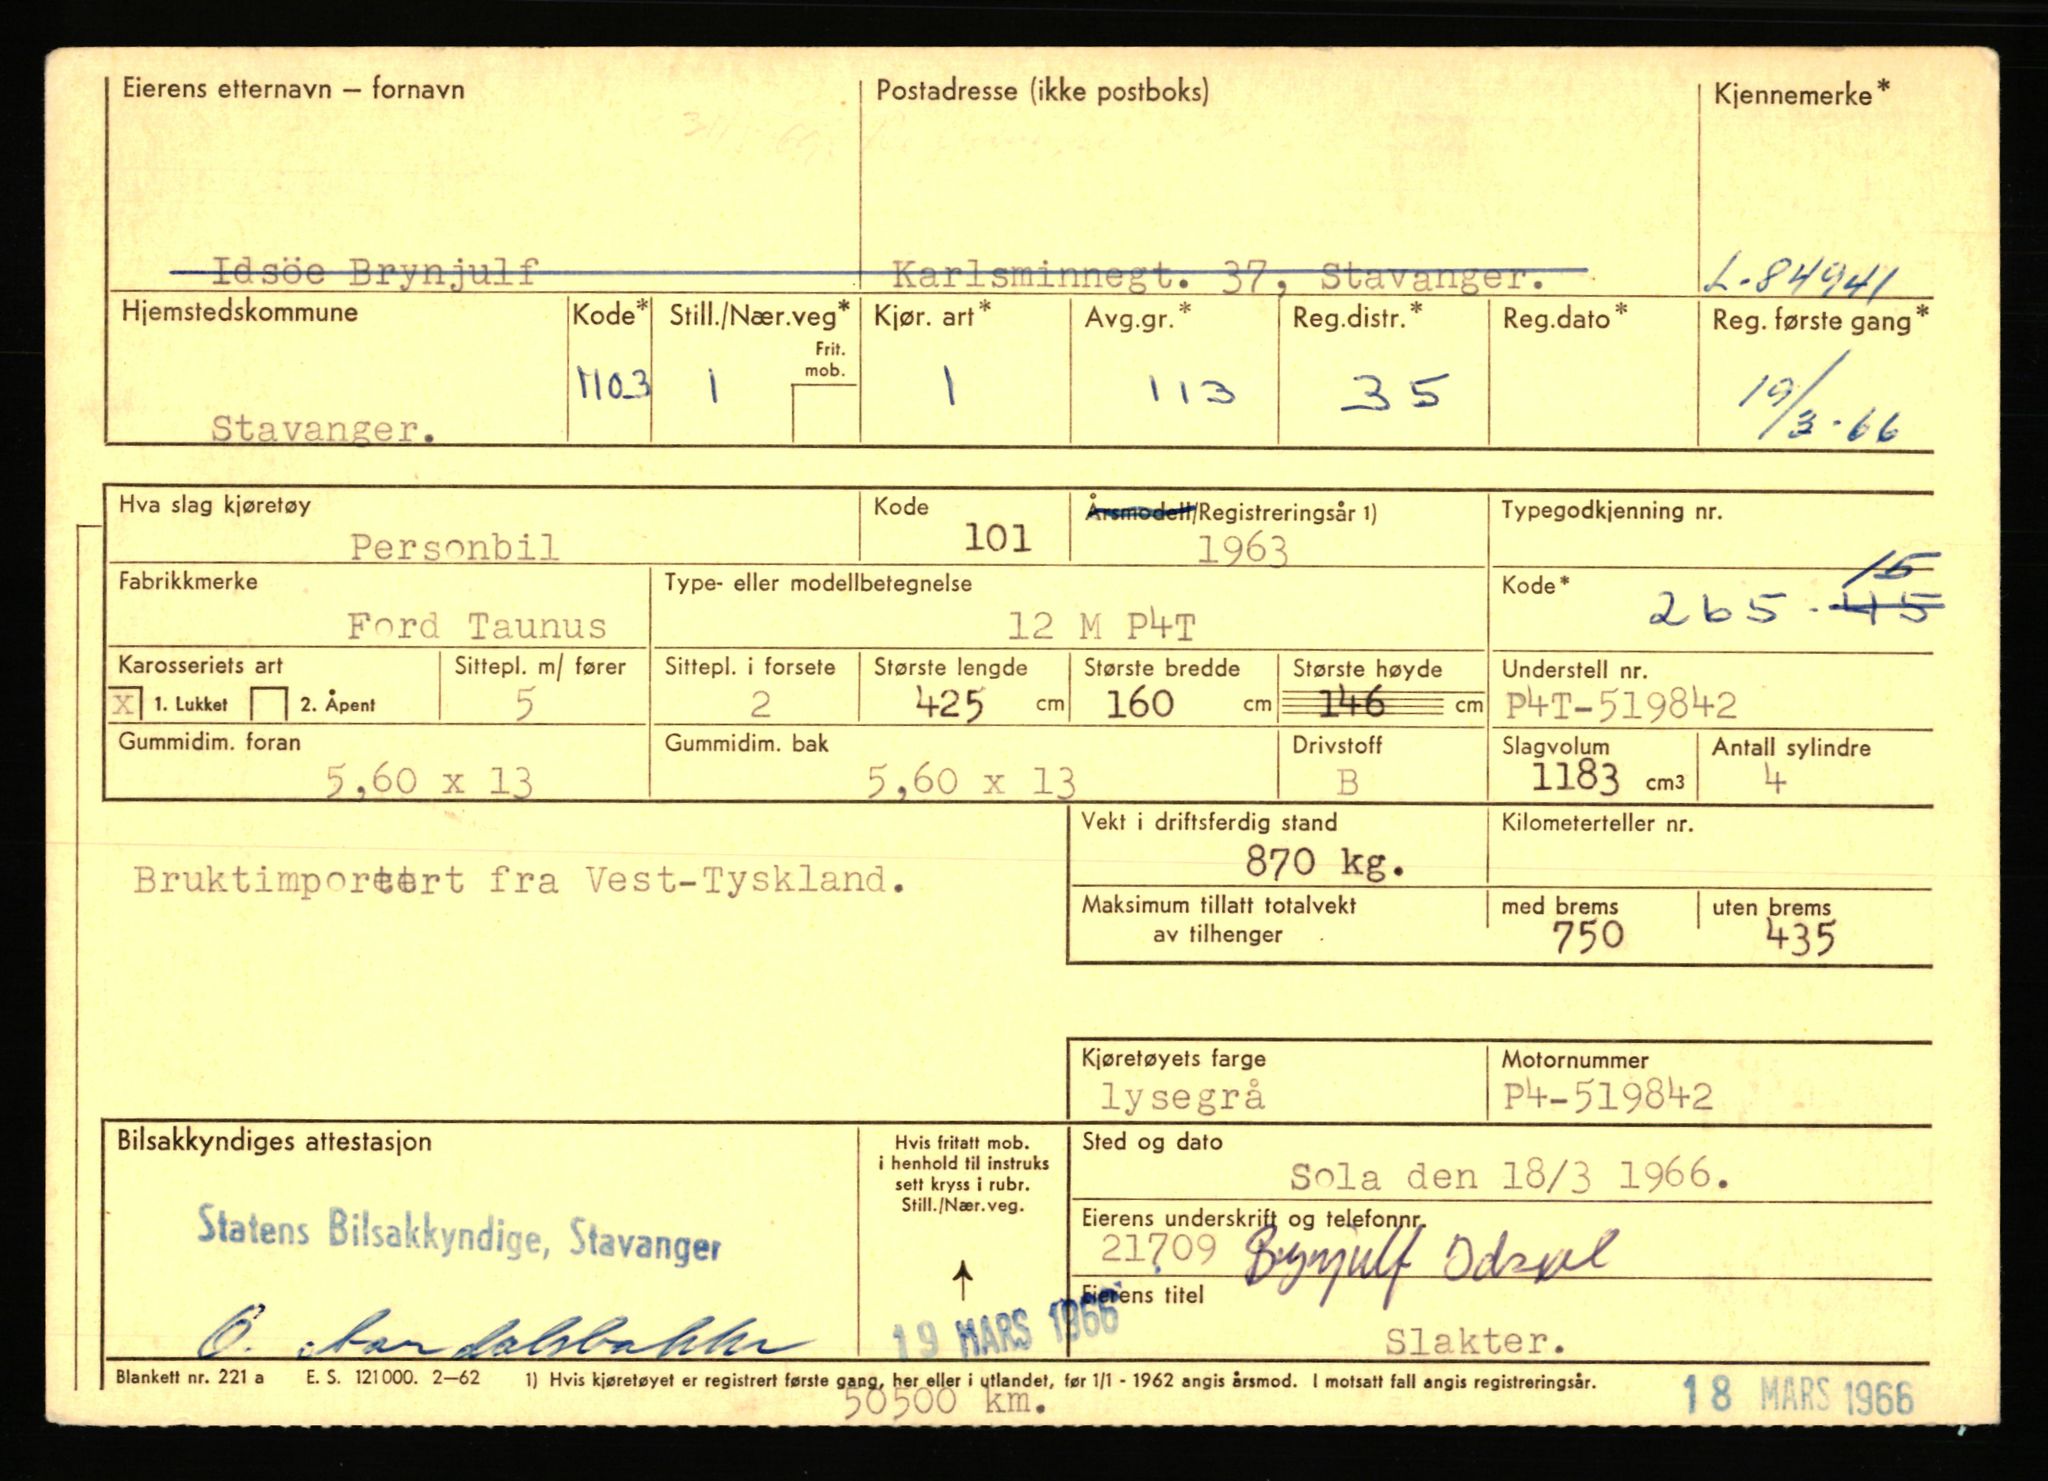 Eierens etternavn – fornavn Postadresse (ikke postboks) Kjennemerke*
Idsöe Brynjulf Karlsminnegt. 37, Stavanger. L-84941
Hjemstedskommune Kode* Still./Nær.veg* Kjør. art* Avg.gr.* Reg.distr.* Reg.dato* Reg. første gang*
Frit.
mob.
Stavanger. 1103 1 1 113 35 19/3-66
Hva slag kjøretøy Kode Årsmodell/Registreringsår 1) Typegodkjenning nr.
Personbil 101 1963
Fabrikkmerke Type- eller modellbetegnelse Kode* 15
Ford Taunus 12 M P4T 265-45
Karosseriets art Sittepl. m/ fører Sittepl. i forsete Største lengde Største bredde Største høyde Understell nr.
X 1. Lukket 2. Åpent 5 2 425 cm 160 cm 146 cm P4T-519842
Gummidim. foran Gummidim. bak Drivstoff Slagvolum Antall sylindre
5,60 x 13 5,60 x 13 B 1183 cm3 4
Vekt i driftsferdig stand Kilometerteller nr.
870 kg.
Bruktimportert fra Vest-Tyskland.
Maksimum tillatt totalvekt med brems uten brems
av tilhenger 750 435
Kjøretøyets farge Motornummer
lysegrå P4-519842
Bilsakkyndiges attestasjon Hvis fritatt mob. Sted og dato
i henhold til instruks
sett kryss i rubr.
Still./Nær.veg.
Sola den 18/3 1966.
Statens Bilsakkyndige, Stavanger
Eierens underskrift og telefonnr.
21709 Brynjulf Idsøe
Eierens titel
19 MARS 1966
Slakter.
Blankett nr. 221 a E. S. 121000. 2–62 1) Hvis kjøretøyet er registrert første gang, her eller i utlandet, før 1/1 - 1962 angis årsmod. I motsatt fall angis registreringsår.
50500 km. 18 MARS 1966